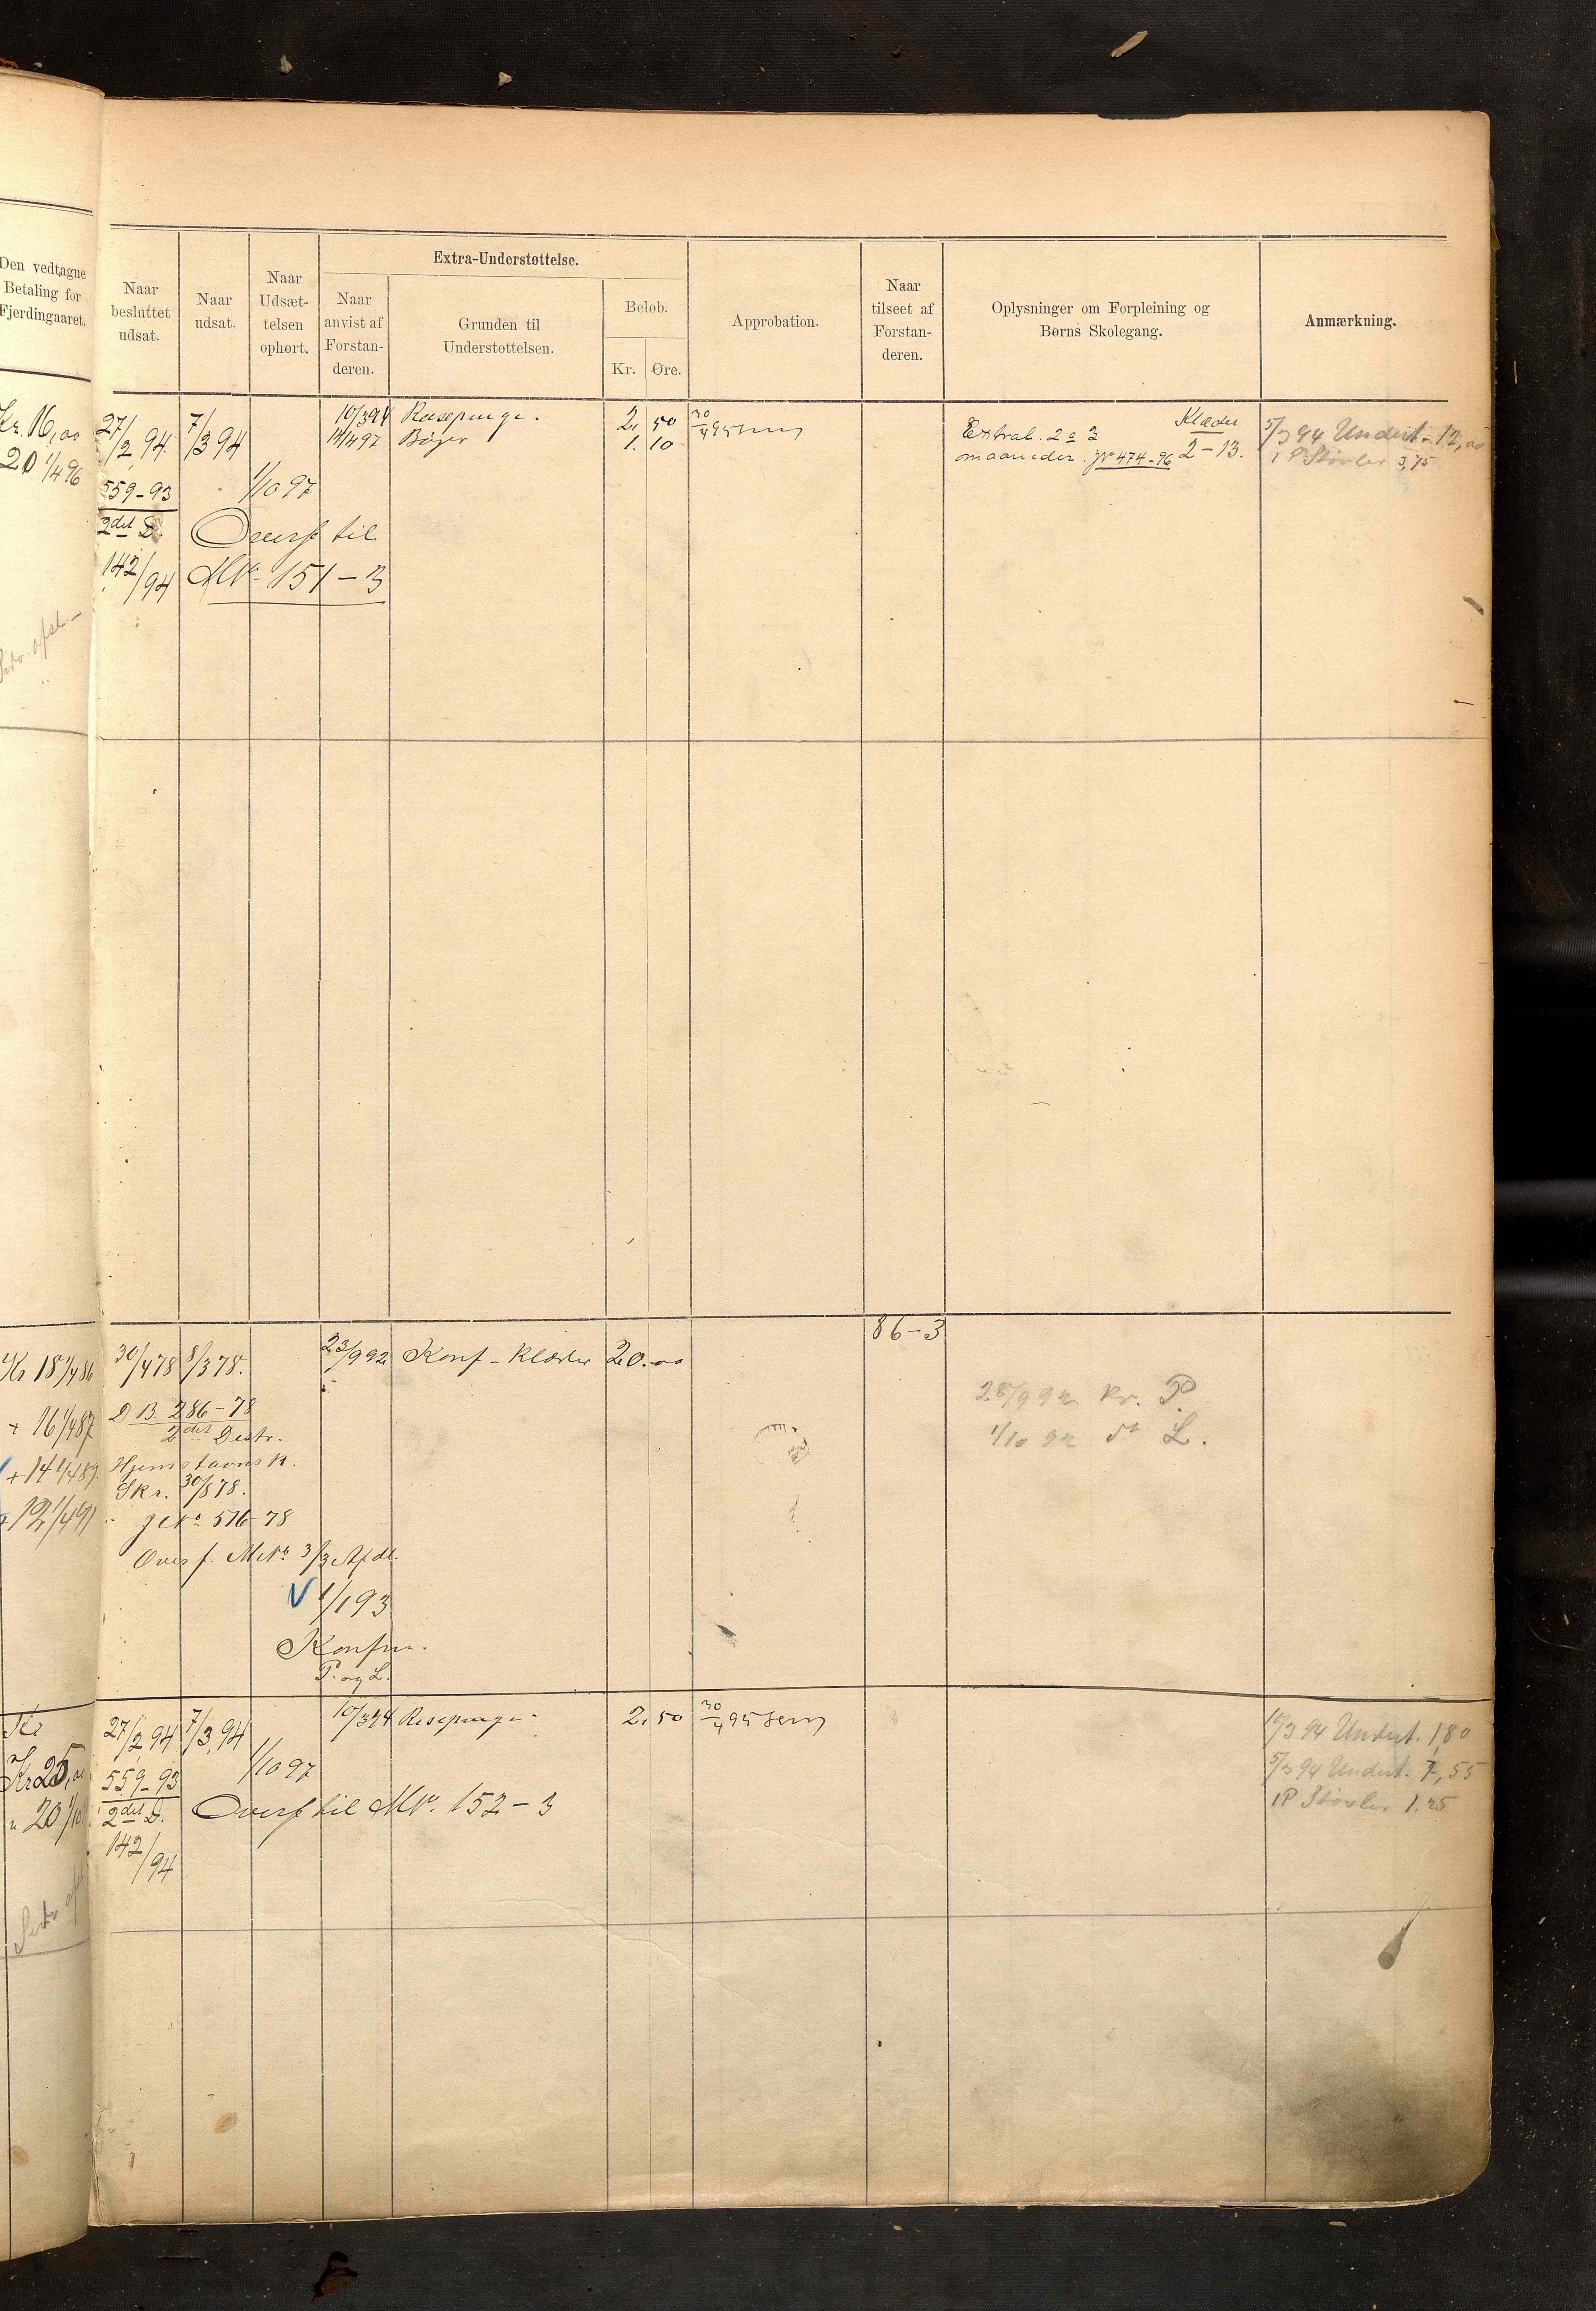 Den vedtagne
Betaling for
Fjerdingaaret.
Naar
besluttet
udsat.
Naar
udsat.
Naar
Udsæt-
telsen
ophørt.
Extra-Understøttelse.
Naar
anvist af
Forstan-
deren.
Grunden til
Understøttelsen.
Beløb.
Kr.
Øre.
Approbation.
Naar
tilseet af
Forstan-
deren.
Oplysninger om Forpleining og
Børns Skolegang.
Anmærkning.
Kr. 16,00
20 1/4 96
27/2 94.
559-93
2det D.
142/94
7/3 94
1/10 97
Overf til
MNo. 151-3
10/3 94 Reisepenge. 2, 50
Bøger 1. 10
30/4 95
Extrab. 2 a 3
omaaneder. JN 474-96
Klæder
2-13.
5/3 94 Underst. 12,00
1 P Støvler 3,75
86-3
Kr 18 1/4 86
+ 16 1/4 87
+ 14 1/4 89
+ 12 1/4 91
30/4 78
8/3 78.
23/9 92 Konf-Klæder 20.00
D B. 286-78
2det Distr.
Hjemstavns K.
Skr. 30/8 78.
JNo. 516-78
Overf. MNo 3/3 Afdl.
1/1 93
Konfm.
P. og L.
28/9 92 Kr. P.
1/10 92 L.
Kr
Kr 25,00
" 20 1/10
27/2 94
559-93
2det D.
142/94
7/3 94
1/10 97
Overf til MNo. 152-3
10/3 94 Reisepenge. 2, 50
30/4 95
10/3 94 Underst. 1,80
5/3 94 Underst. 7,55
1P Støvler 1.25